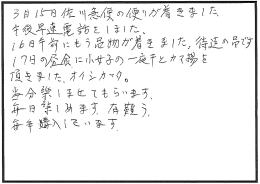 3月15日佐川急便の便りが着きました。
午後早速電話をしました。
16日午前にもう品物が着きました。待望の品です
17日の昼食に小女子の一夜干とカマ揚を
頂きました。オイシカッタ。
当分楽しませてもらいます。
毎日楽しめます。有難う。
毎年購入しています。